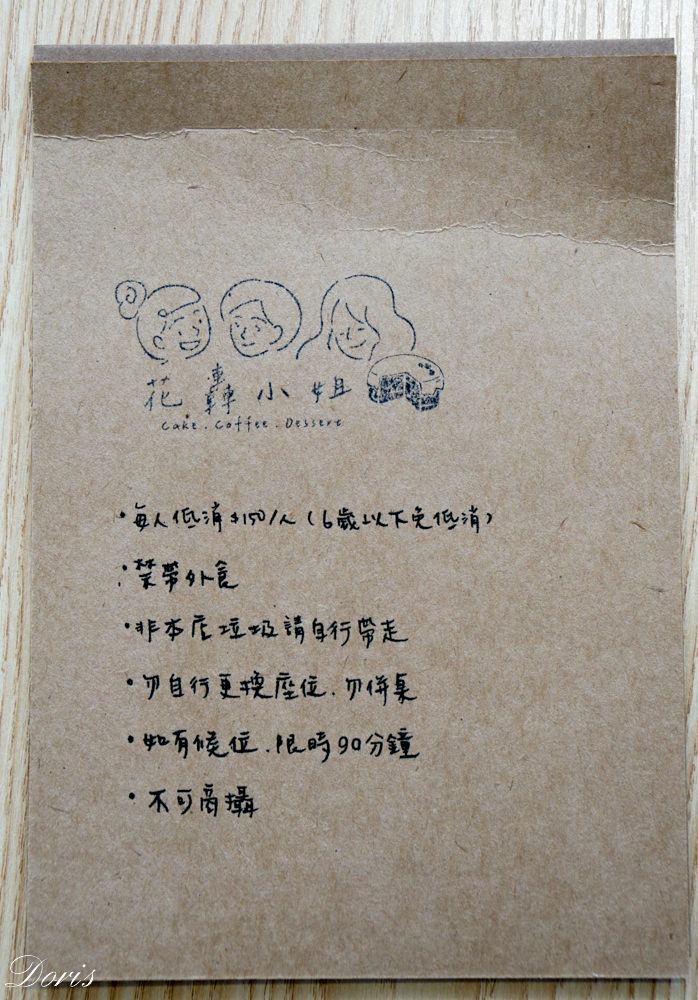 花轟小姐
Cake.Coffee.Dessert
•每人低消$150/人(6歲以下免低消)
•禁帶外食
•非本店垃圾請自行帶走
•勿自行更換座位.勿併桌
•如有候位.限時90分鐘
•不可商攝
Doris